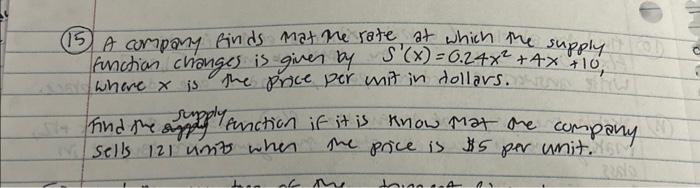 (15) A company finds that the rate at which the supply
function changes is given by S'(x) = 0.24x² + 4x + 10,
where x is the price per unit in dollars.
Find the supply function if it is know that the company
sells 121 units when the price is $5 per unit.